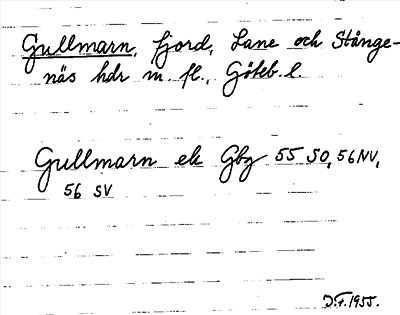 Gullmarn, fjord, Lane och Stånge-
näs hdr m. fl., Göteb. l.
Gullmarn ek Gbg 55 SO, 56 NV,
56 SV
J.F. 1955.